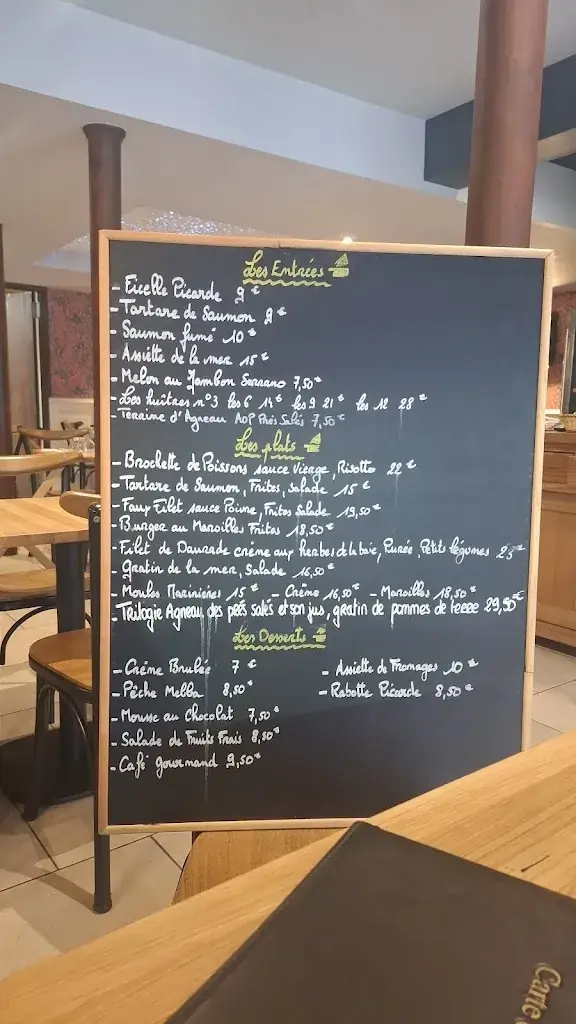 Les Entrées
- Ficelle Picarde 9 €
- Tartare de Saumon 9 €
- Saumon fumé 10 €
- Assiette de la mer 15 €
- Melon au Jambon Serrano 7,50 €
- Les huîtres n°3 les 6 14 € les 9 21 € les 12 28 €
- Terrine d'Agneau AOP Prés Salés 7,50 €
Les plats
- Brochette de Poissons sauce Vierge, Risotto 22 €
- Tartare de Saumon, Frites, Salade 15 €
- Faux Filet sauce Poivre, Frites Salade 19,50 €
- Burger au Maroilles Frites 18,50 €
- Filet de Daurade crème aux herbes de la baie, Purée, Petits légumes 23 €
- Gratin de la mer, Salade 16,50 €
- Moules Marinières 15 € - Crème 16,50 € - Maroilles 18,50 €
- Trilogie Agneau des prés salés et son jus, gratin de pommes de teeee 29,50 €
Les Desserts
- Crème Brulée 7 € - Assiette de Fromages 10 €
- Pêche Melba 8,50 € - Rabotte Picarde 8,50 €
- Mousse au Chocolat 7,50 €
- Salade de Fruits Frais 8,50 €
- Café gourmand 9,50 €
Carte